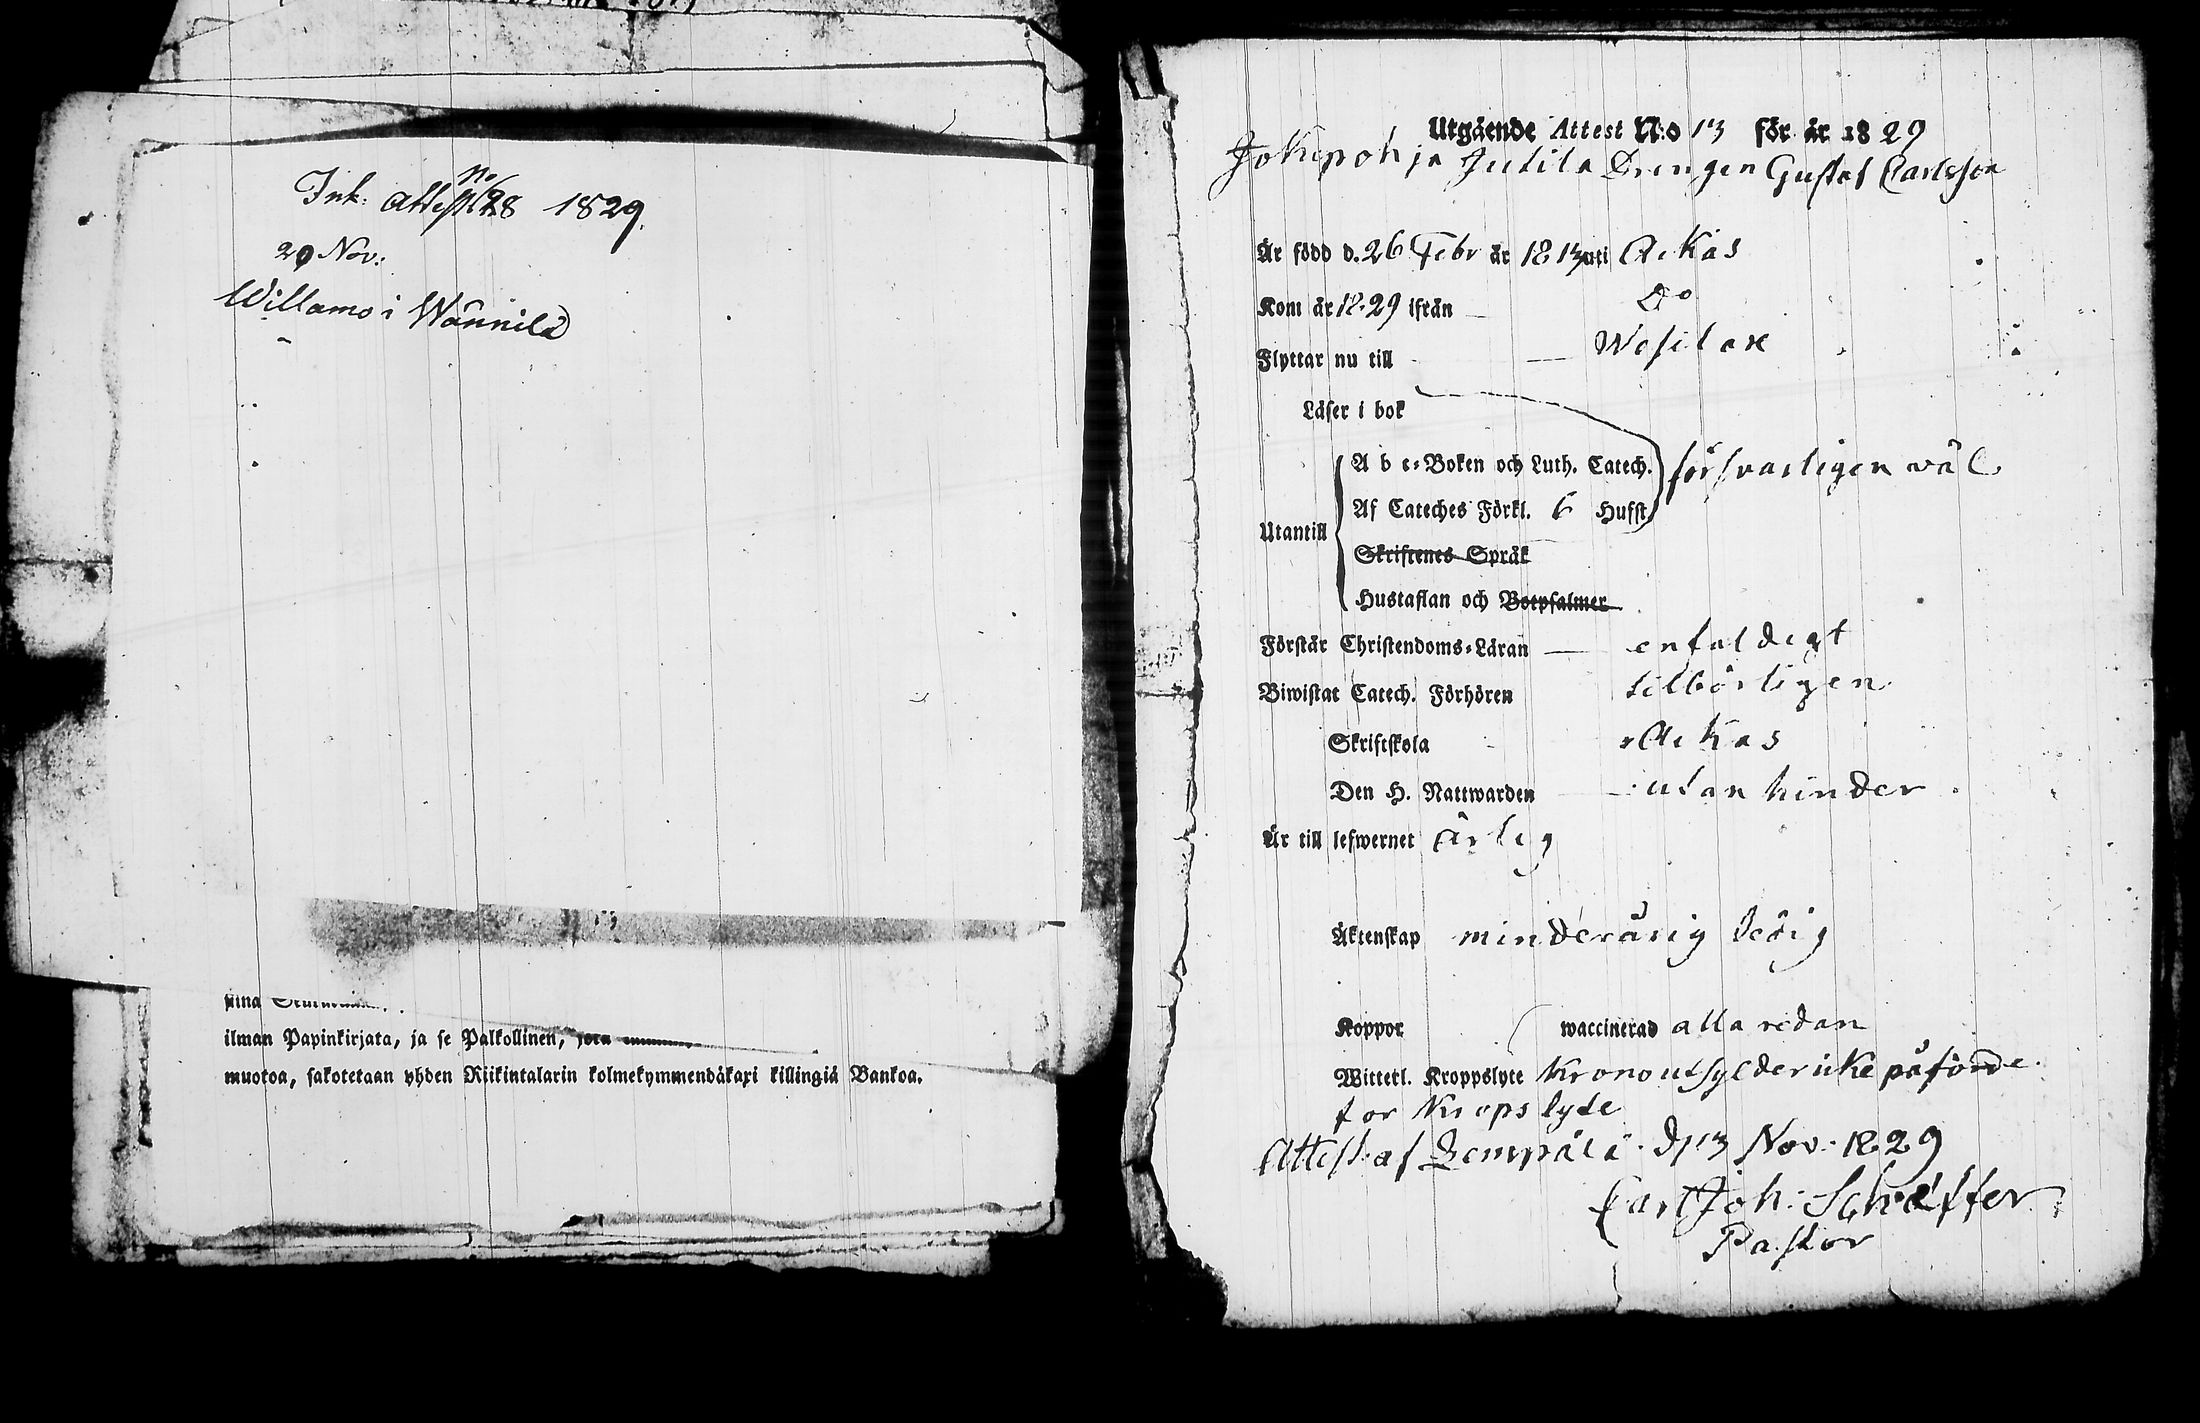 Ink. Attest No 28 1829.
29 Nov:
Willamo i Wännilä
ilman Papinkirjata, ja se Palkollinen, jota
muotoa, sakotetaan yhden Riikintalarin kolmekymmendäkaxi killingiä Bankoa.
Utgående Attest N:o 13 för år 1829
Jokipohja Jutila Drengen Gustaf Carlsson
Är född d. 26 Febr år 1813 uti Ackas
Kom år 1829 ifrån Do
Flyttar nu till Wesilax
Läser i bok
A b c-Boken och Luth. Catech. försvarligen väl
Af Cateches Förkl. 6 Hufst.
Utantill
Skriftenes Språk
Hustaflan och Botpsalmer
Förstår Christendoms-Läran enfaldigt
Biwistat Catech. Förhören tilbörligen
Skriftskola i Ackas
Den H. Nattwarden utan hinder
Är till lefwernet ärlig
Äktenskap minderårig ledig
Koppor waccinerad allaredan
Witterl. Kroppslyte Kronoutsylder icke påförde
for Kropslyte
Attest. af Lempälä d 13 Nov: 1829
Carl Joh: Scheffer
Pastor